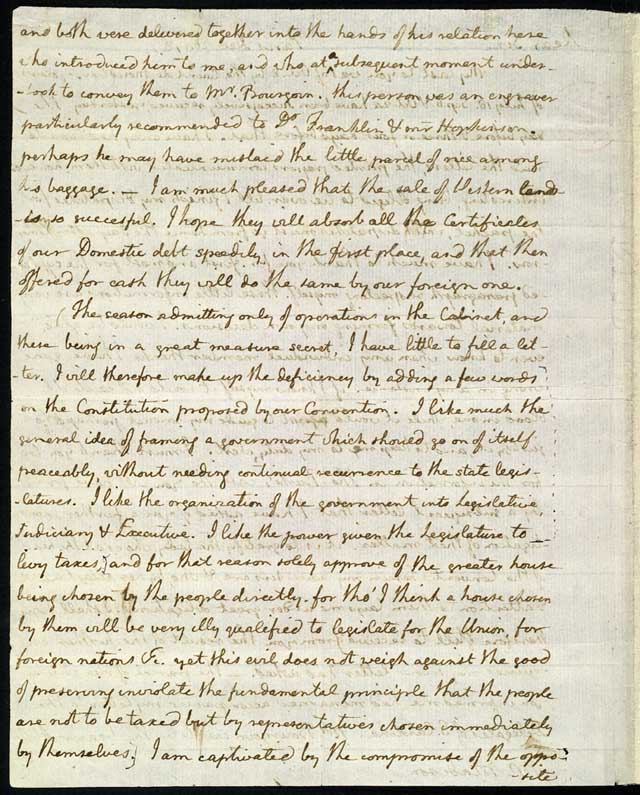 and both were delivered together into the hands of his relation here
who introduced him to me, and who at a subsequent moment under-
-took to convey them to Mr. Bourgoin. this person was an engraver
particularly recommended to Dr. Franklin & mr Hopkinson.
perhaps he may have mislaid the little parcel of rice among
his baggage. — I am much pleased that the sale of Western lands
is so succesful. I hope they will absorb all the Certificates
of our Domestic debt speedily, in the first place, and that then
offered for cash they will do the same by our foreign one.
(The season admitting only of operations in the Cabinet, and
these being in a great measure secret, I have little to fill a let-
-ter. I will therefore make up the deficiency by adding a few words
on the Constitution proposed by our Convention. I like much the
general idea of framing a government which should go on of itself
peaceably, without needing continual recurrence to the state legis-
-latures. I like the organization of the government into Legislative,
Judiciary & Executive. I like the power given the Legislature to
levy taxes,) and for that reason solely approve of the greater house
being chosen by the people directly. for tho' I think a house chosen
by them will be very illy qualified to legislate for the Union, for
foreign nations &c. yet this evil does not weigh against the good
of preserving inviolate the fundamental principle that the people
are not to be taxed but by representatives chosen immediately
by themselves.) I am captivated by the compromise of the oppo-
-site